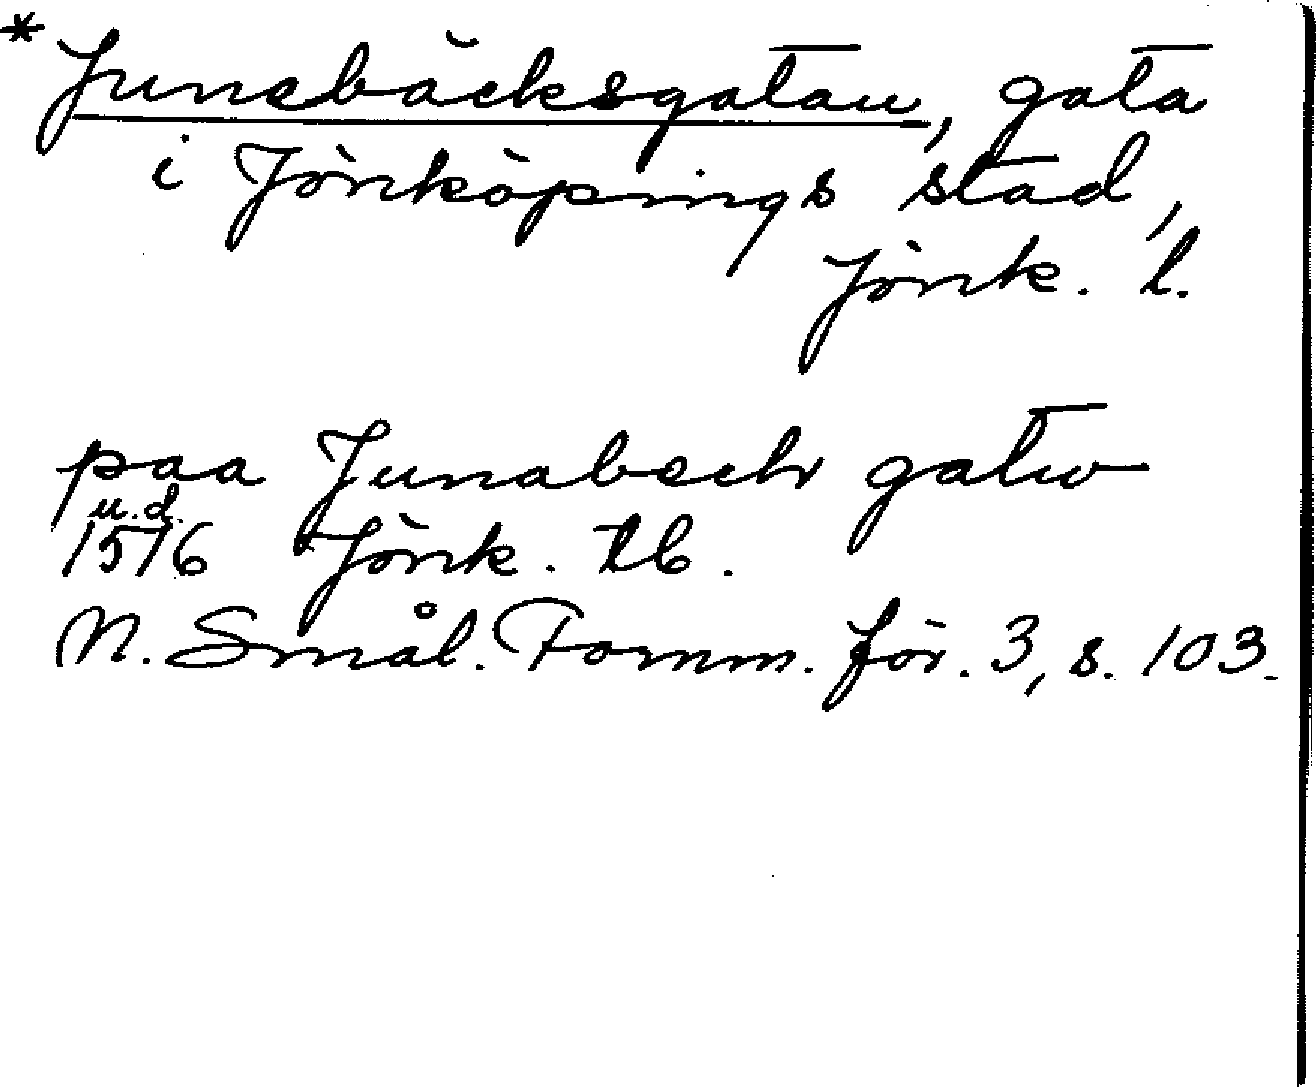 *Junebäcksgatan, gata
i Jönköpings stad,
Jönk. l.
paa Junabech gatw
u.d.
1516 Jönk. tb.
N. Smål. Fornm. för. 3, s. 103.